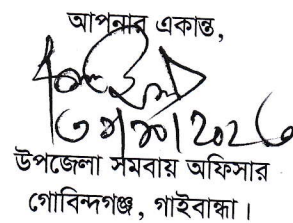 আপনার একান্ত,
উপজেলা সমবায় অফিসার
গোবিন্দগঞ্জ, গাইবান্ধা।